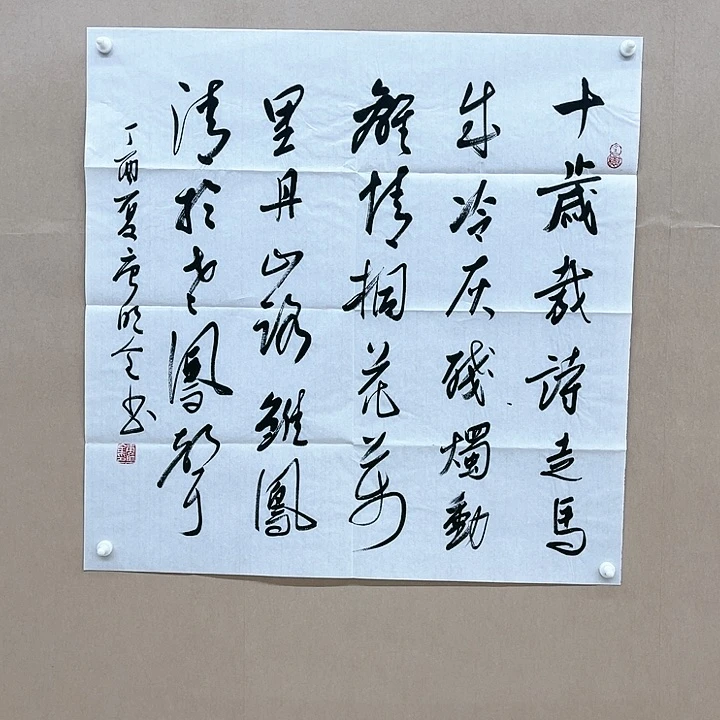 十歲裁詩走馬
成冷灰殘燭動
離情桐花萬
里丹山路雛鳳
清於老鳳聲
丁酉夏唐明書